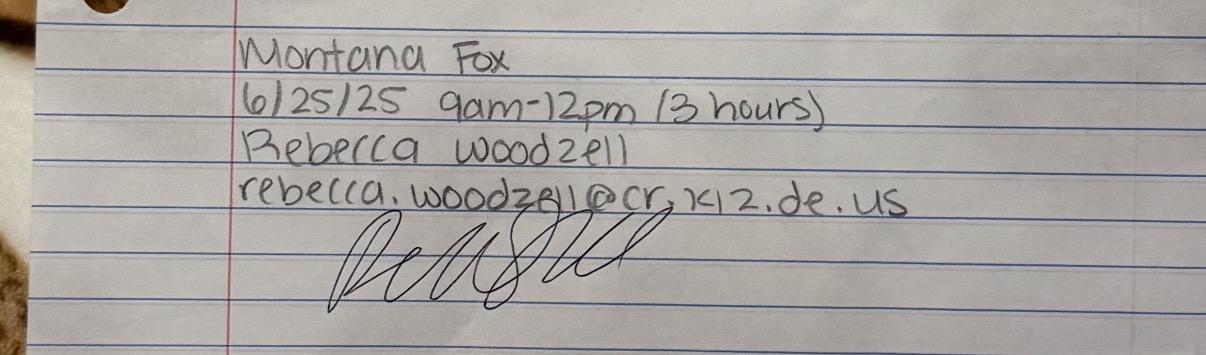 Montana Fox
6/25/25 9am-12pm (3 hours)
Rebecca Woodzell
rebecca.woodzell@cr.k12.de.us